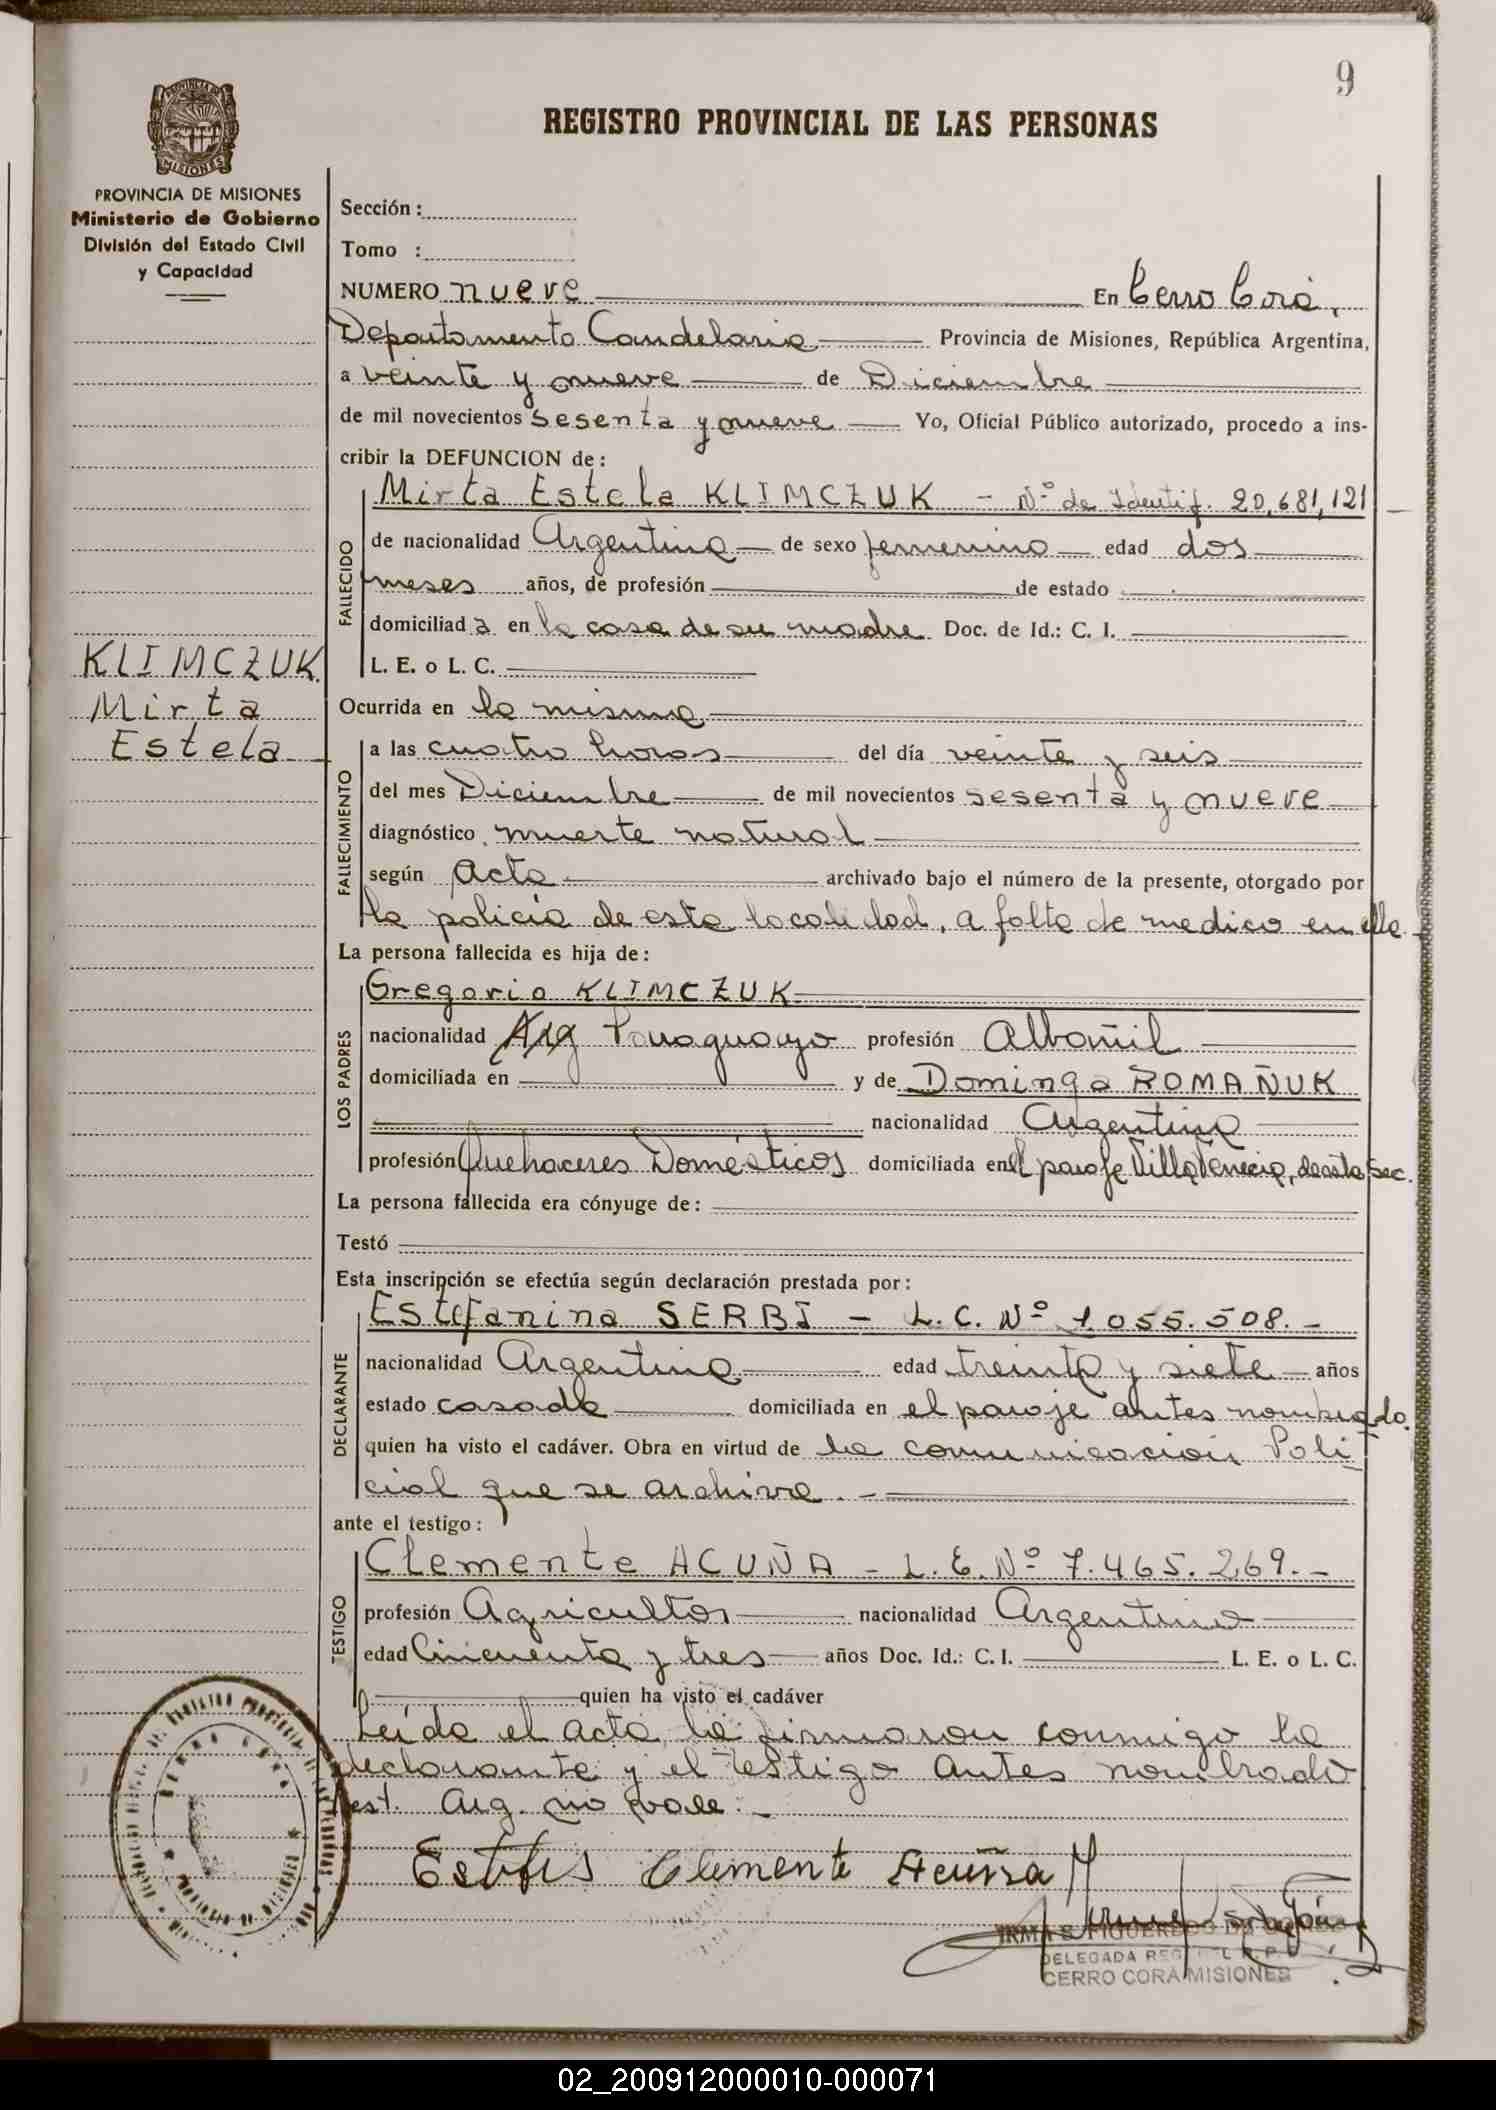 9
REGISTRO PROVINCIAL DE LAS PERSONAS
PROVINCIA DE MISIONES
MISIONES
PROVINCIA DE MISIONES
Ministerio de Gobierno
División del Estado Civil
y Capacidad
Sección:
Tomo :
NUMERO nueve En Cerro Corá,
Departamento Candelaria Provincia de Misiones, República Argentina,
a veinte y nueve de Diciembre
de mil novecientos sesenta y nueve Yo, Oficial Público autorizado, procedo a ins-
cribir la DEFUNCION de:
FALLECIDO
Mirta Estela KLIMCZUK - Nº de Identif. 20,681,121
de nacionalidad Argentina de sexo femenino edad dos
meses años, de profesión de estado
domiciliada en la casa de su madre Doc. de Id.: C. I.
L. E. o L. C.
KLIMCZUK.
Mirta
Estela
Ocurrida en la misma
FALLECIMIENTO
a las cuatro horas del día veinte y seis
del mes Diciembre de mil novecientos sesenta y nueve
diagnóstico muerte natural
según Acta archivado bajo el número de la presente, otorgado por
la policía de esta localidad, a falta de medico en ella
La persona fallecida es hija de:
LOS PADRES
Gregorio KLIMCZUK
nacionalidad Arg Paraguayo profesión Albañil
domiciliada en y de Dominga ROMAÑUK
nacionalidad Argentina
profesión Quehaceres Domésticos domiciliada en el paraje Villa Venecia, de esta Sec.
La persona fallecida era cónyuge de:
Testó
Esta inscripción se efectúa según declaración prestada por:
DECLARANTE
Estefanina SERBI - L. C. Nº 1.055.508.-
nacionalidad Argentina edad treinta y siete años
estado casada domiciliada en el paraje antes nombrado.
quien ha visto el cadáver. Obra en virtud de la comunicación Poli-
cial que se archiva.-
ante el testigo:
TESTIGO
Clemente ACUÑA - L. E. Nº 7.465.269.-
profesión Agricultor nacionalidad Argentino
edad Cincuenta y tres años Doc. Id.: C. I. L. E. o L. C.
quien ha visto el cadáver
Leída el acta, la firmaron conmigo la
declarante y el testigo antes nombrado
Test. Arg. no vale.-
Clemente Acuña
IRMA S. FIGUEREDO
DELEGADA
CERRO CORA MISIONES
02_200912000010-000071